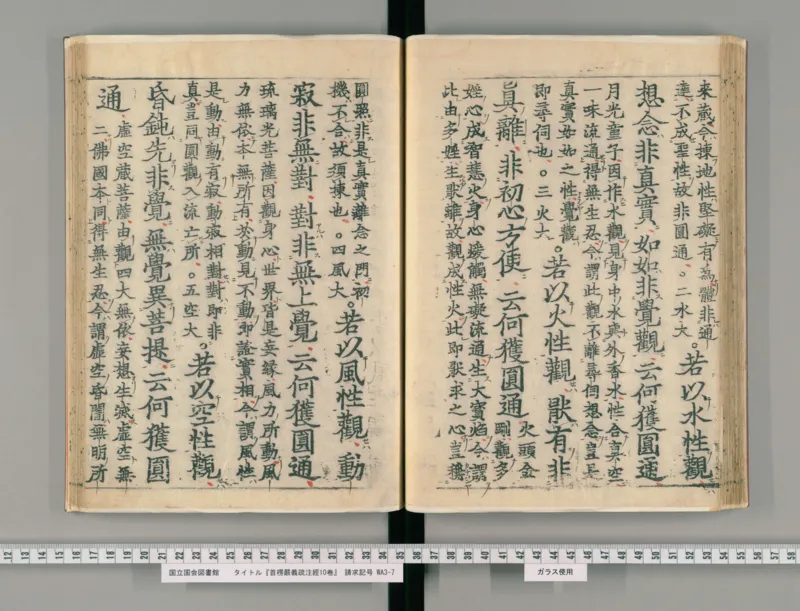 來藏今揀地性堅礙有為體非通
達不成聖性故非圓通。二水大。
若以水性觀
想念非真實 如如非覺觀 云何獲圓通
月光童子因作水觀見身中水與外香水性合真空
一味流通得無生忍今謂此觀不離尋伺想念豈是
真實如如之性覺觀
即尋伺也。三火大。
若以火性觀 猒有非
真離 非初心方便 云何獲圓通
火頭金
剛觀多
婬心成智慧火身心煖觸無礙流通生大寶焰今謂
此由多婬生猒離故觀成性火此即猒求之心豈獲
圓無非是真實離念之門初
機不合故須揀也。四風大。
若以風性觀 動
寂非無對 對非無上覺 云何獲圓通
琉璃光菩薩因觀身心世界皆是妄緣風力所動風
力無依本無所有於動見不動即證實相今謂風性
是動由動有寂動寂相對對即非
真豈同圓觀入流亡所。五空大。
若以空性觀
昏鈍先非覺 無覺異菩提 云何獲圓
通
虛空藏菩薩由觀四大無依妄想生滅虛空無
二佛國本同得無生忍今謂虛空昏闇無明所
12 13 14 15 16 17 18 19 20 21 22 23 24 25 26 27 28 29 30 31 32 33 34 35 36 37 38 39 40 41 42 43 44 45 46 47 48 49 50 51 52 53 54 55 56 57 58
国立国会図書館 タイトル『首楞嚴義疏注經10巻』 請求記号 WA3-7
ガラス使用